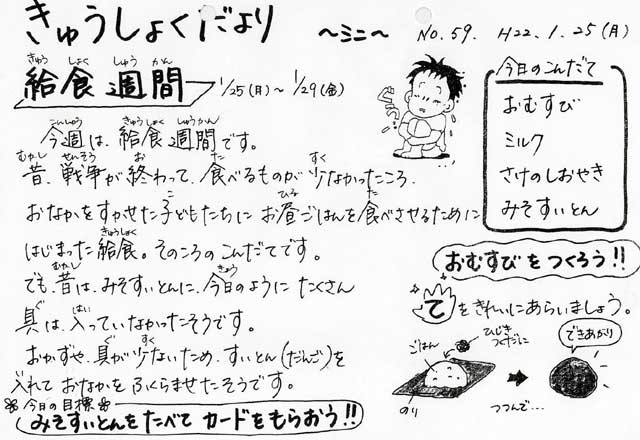 きゅうしょくだより ～ミニ～ No.59. H22.1.25(月)
給食週間 1/25(月)～1/29(金)
今週は、給食週間です。
昔、戦争が終わって、食べるものが少なかったころ、
おなかをすかせた子どもたちにお昼ごはんを食べさせるために
はじまった給食。そのころのこんだてです。
でも、昔は、みそすいとんに、今日のようにたくさん
具は、入っていなかったそうです。
おかずや、具が少ないため、すいとん(だんご)を
入れておなかをふくらませたそうです。
今日の目標
みそすいとんをたべてカードをもらおう!!
今日のこんだて
おむすび
ミルク
さけのしおやき
みそすいとん
おむすびをつくろう!!
てをきれいにあらいましょう。
ごはん
ひじき
つくだに
のり
つつんで…
できあがり